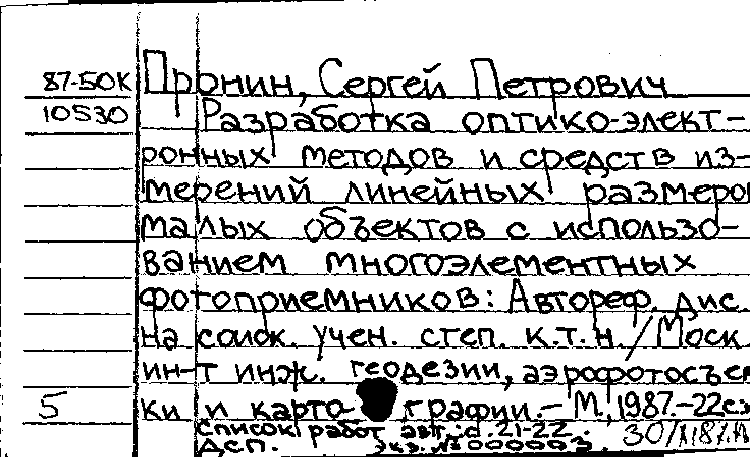 87-50К Пронин, Сергей Петрович
10530 Разработка оптико-элект-
ронных методов и средств из-
мерений линейных размеро
малых объектов с использо-
ванием многоэлементных
фотоприемников: Автореф. дис.
На соиск. учен. степ. к.т.н./Моск
ин-т инж. геодезии, аэрофотосъем
5 ки и карто- графии.- М., 1987.-22с
Список работ авт.: с. 21-22.
ДСП. Экз. № 000003.